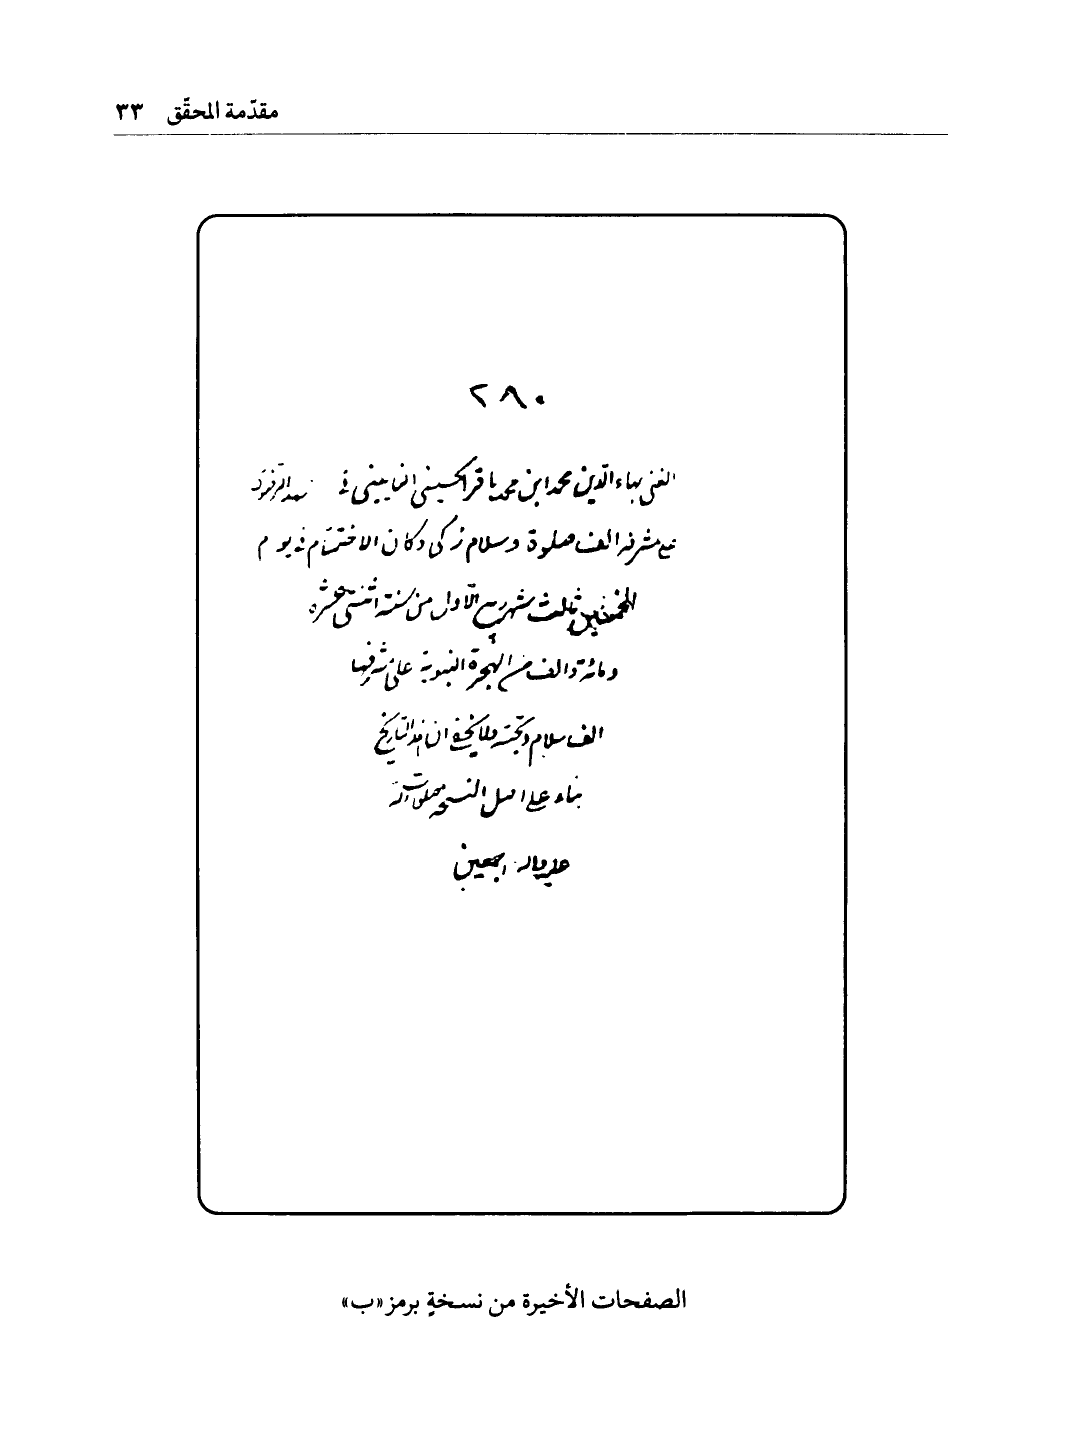 مقدّمة المحقّق ٣٣
٢٨٠
الغنى بهاء الدين محمد ابن محمد باقر الحسينى النايينى فى
مشرفه الف صلوة وسلام زكى وكان الاختتام فى يوم
الخميس ثلث شهر ربيع الاول من سنة اثنتى عشره
ومائة والف من الهجرة النبوية على مشرفها
الف سلام وتحية ولا يخفى ان هذا التاريخ
بناء على اصل النسخه صلوات الله
عليه واله اجمعين
الصفحات الأخيرة من نسخةٍ برمز«ب»